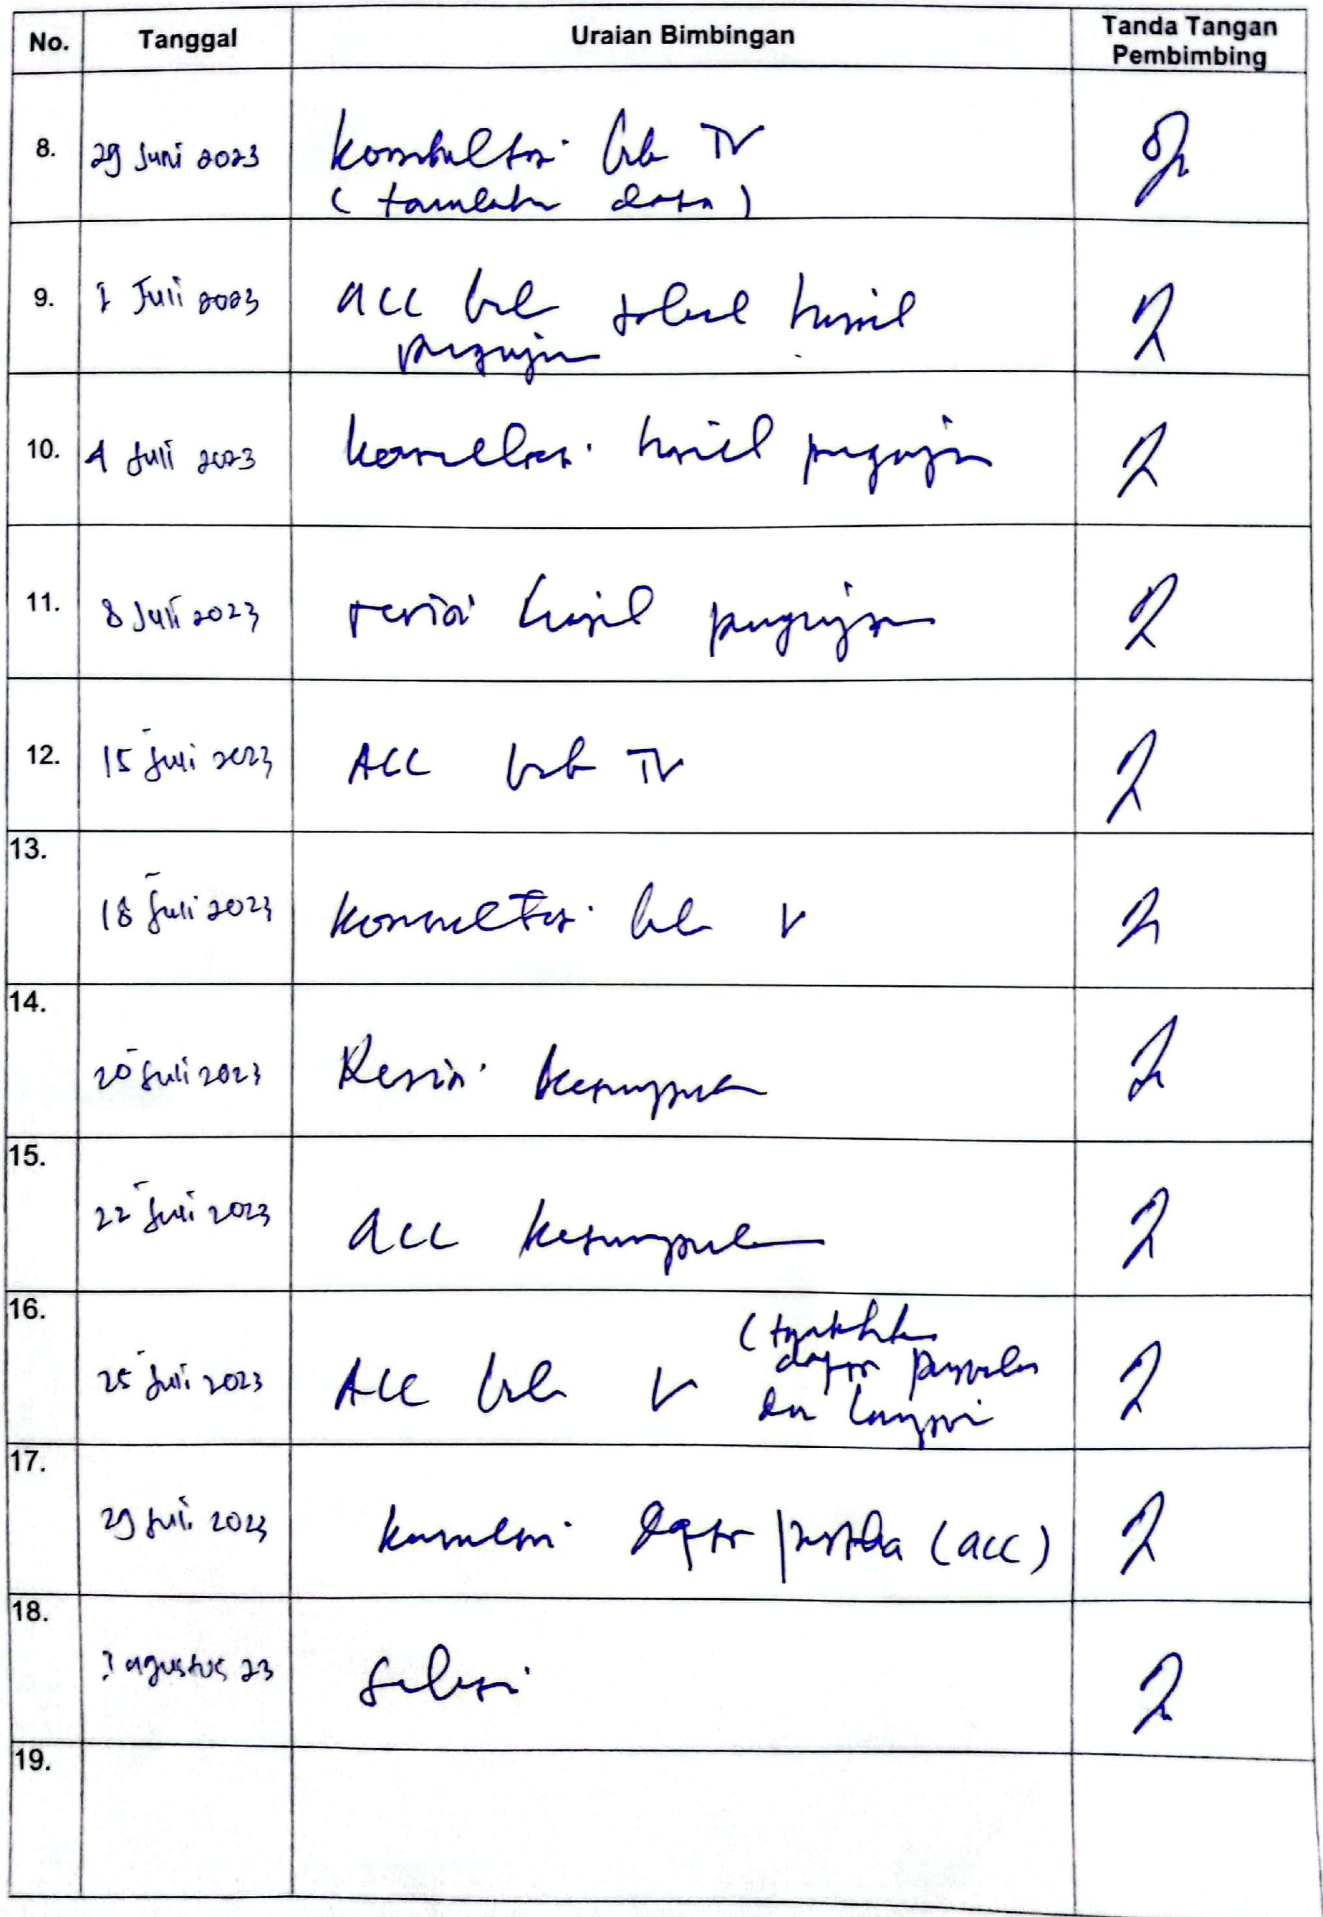 No. Tanggal Uraian Bimbingan Tanda Tangan Pembimbing
8. 29 Juni 2023 konsultasi bab IV
(tambah data)
9. 1 Juli 2023 acc bab tabel hasil
pengujian
10. 4 Juli 2023 konsultasi hasil pengujian
11. 8 Juli 2023 revisi hasil pengujian
12. 15 Juli 2023 ACC bab IV
13.
18 Juli 2023 konsultasi bab V
14.
20 Juli 2023 Revisi kesimpulan
15.
22 Juli 2023 acc kesimpulan
16.
25 Juli 2023 ACC bab V (
daftar
dan
17.
29 Juli 2023 konsultasi daftar pustaka (acc)
18.
agustus 23 selesai
19.